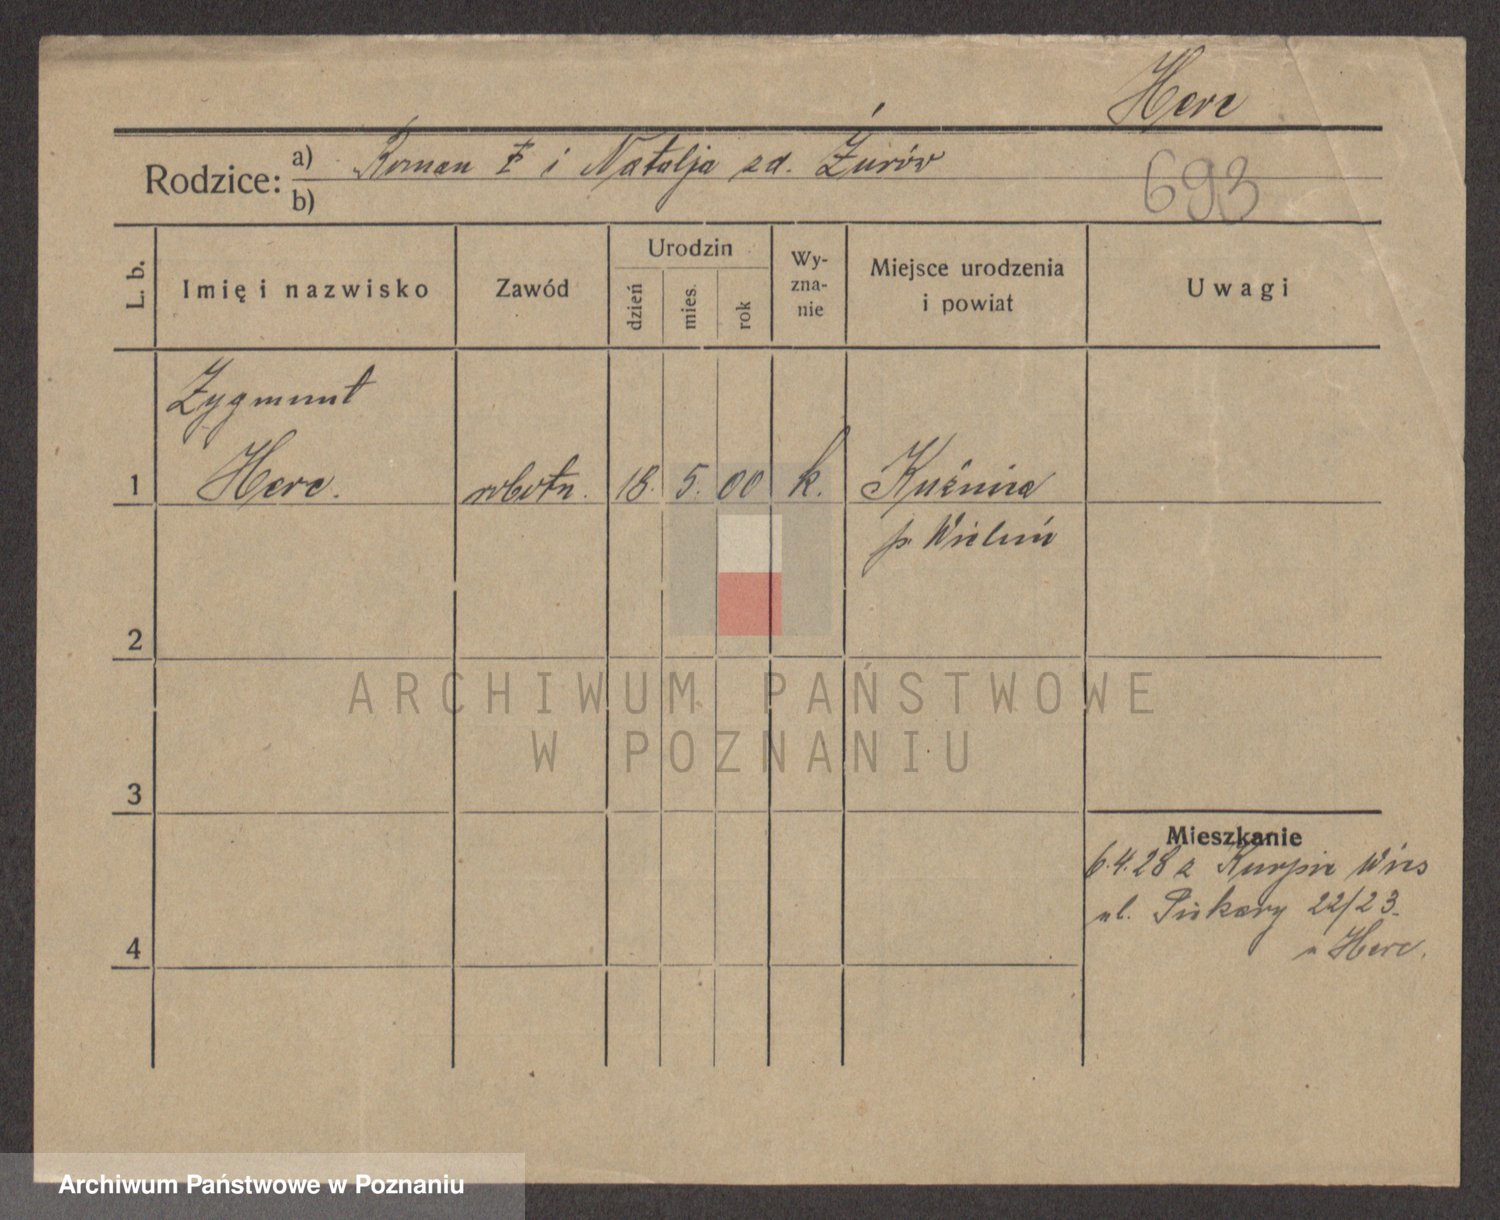 Herc
Rodzice: a) Roman † i Natalja zd. Żurów
b)
693
L. b.
Imię i nazwisko
Zawód
Urodzin
dzień
mies.
rok
Wy-
zna-
nie
Miejsce urodzenia
i powiat
Uwagi
Zygmunt
1 Herc. robotn. 18. 5. 00 k. Kuźnica
p. Wieluń
2
ARCHIWUM PAŃSTWOWE
W POZNANIU
3
Mieszkanie
6.4.28 z Kurpie Wies
ul. Piekary 22/23.
u Herc.
4
Archiwum Państwowe w Poznaniu